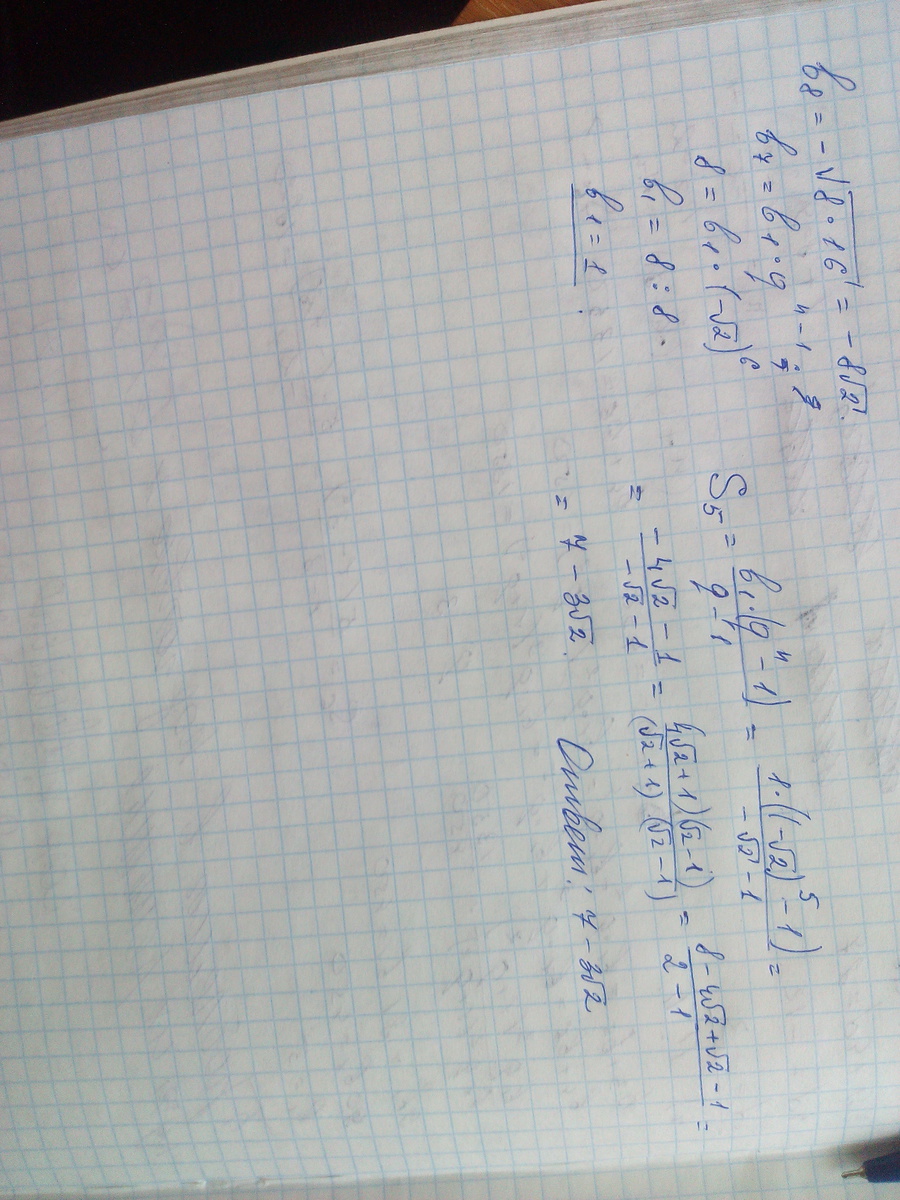 b₈ = -√(8·16) = -8√2.
b₇ = b₁·qⁿ⁻¹;
8 = b₁·(-√2)⁶
b₁ = 8 : 8
b₁ = 1.
S₅ = b₁·(qⁿ - 1) / (q - 1) = 1·((-√2)⁵ - 1) / (-√2 - 1) =
= (-4√2 - 1) / (-√2 - 1) = (4√2 + 1)(√2 - 1) / (√2 + 1)·(√2 - 1) = (8 - 4√2 + √2 - 1) / (2 - 1) =
= 7 - 3√2.
Ответ: 7 - 3√2